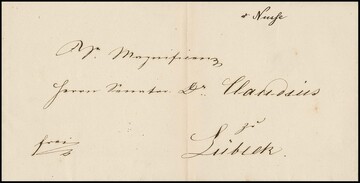 v Nusse
Sr. Magnificenz
Herrn Senator Dr. Claudius
zu
frei
Lübeck.